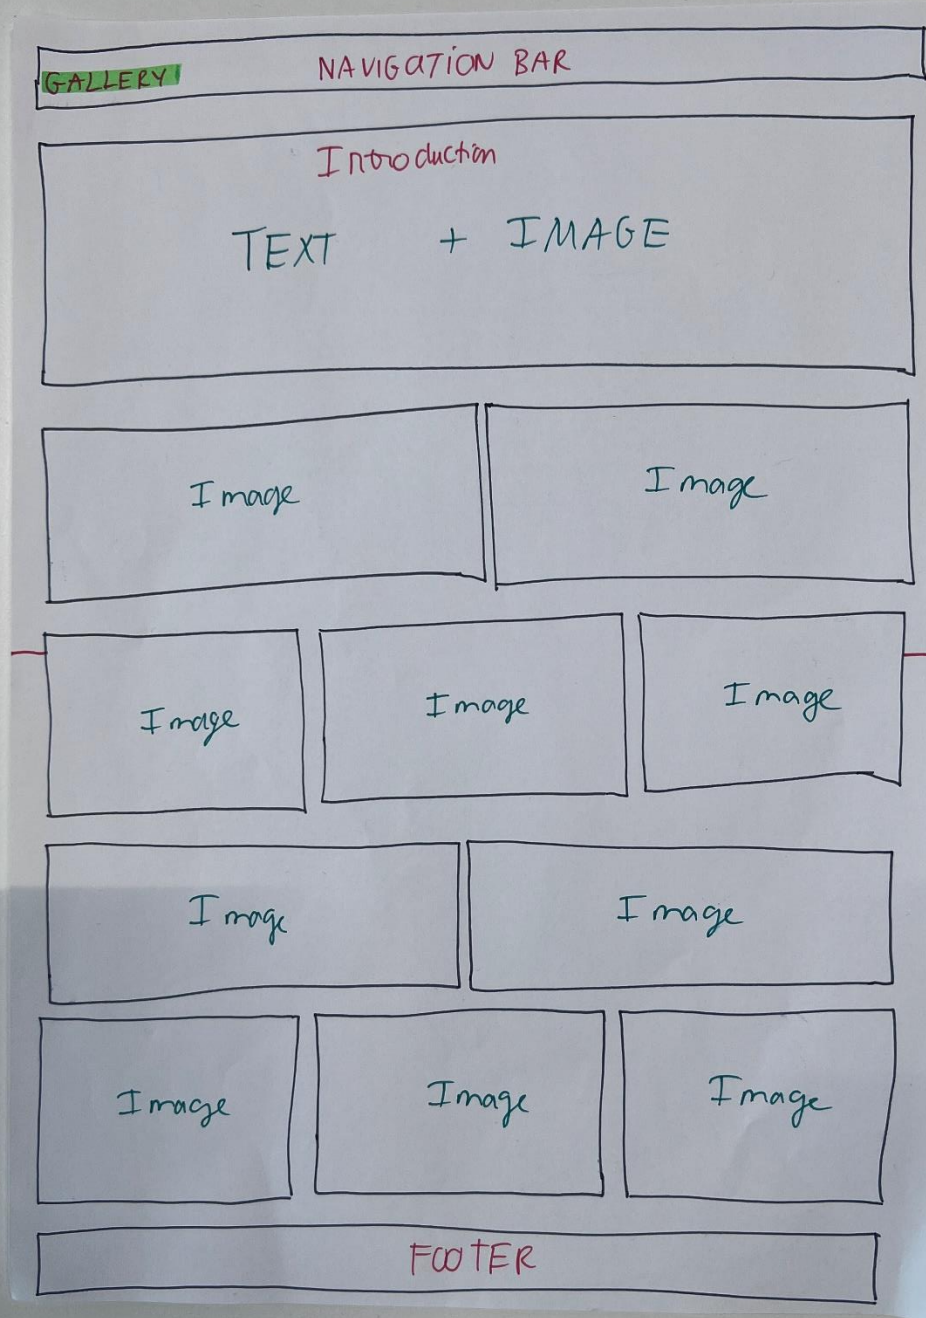 GALLERY NAVIGATION BAR
Introduction
TEXT + IMAGE
Image Image
Image Image Image
Image Image
Image Image Image
FOOTER